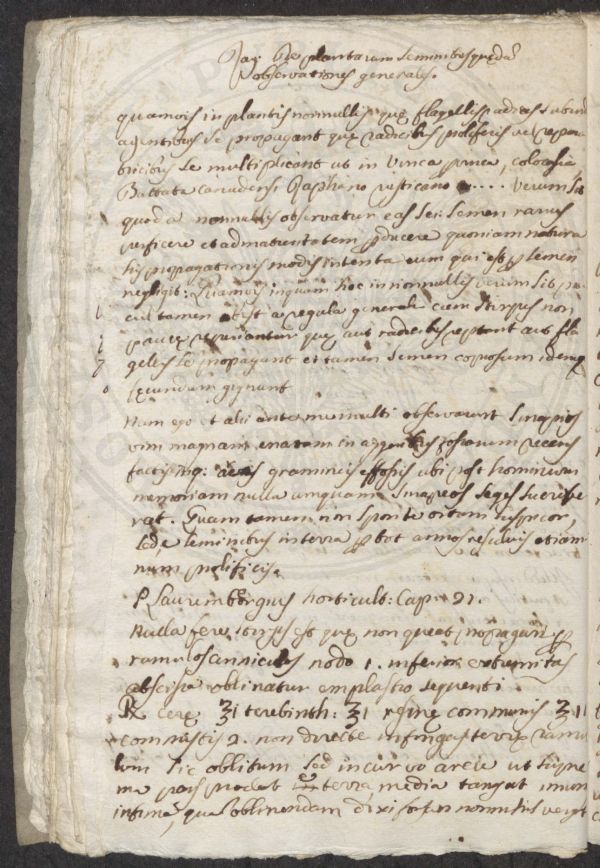 Raij De plantarum seminibus quęda
observationes generales.
quamvis in plantis nonnullis quę flagellis radices subinde
agentibus se propagant quę radicibus proliferis vel repta
tricibus se multiplicant ut in Vinca pruca, colocasia
Battata canadensi Raphano rusticano ..... verum sit
quod a nonnullis observatur eas sci. semen rarius
perficere et ad maturitatem pducere quoniam natura
his propagationis modis intenta eum qui est p semen
negligit: Quamvis inquam hoc in nonnullis verum sit, pro
cul tamen abest a regula generali cum stirpes non
paucę reperiantur quę aut radicibus reptant aut fla
gellis se propagant et tamen semen copiosum idemq
fęcundum gignunt
Nam ego et alii ante me multi observarunt Sinapios
vim magnam enatam in aggeribus fossarum recens
factis inq: areis gramineis effossis ubi post hominum
memoriam nulla unquam Sinapeos seges succreve
rat. Quam tamen non sponte ortam suspicor,
sed e seminibus in terra p tot annos residuis etiam
num prolificis.
P Laurembergius horticult: Cap: 21.
Nulla fere stirps est quę non queat propagari p
ramulos anniculos nodo 1. inferior extremitas
abscissa obliniatur emplastro sequenti
℞ cerę ℥1 terebinth: ℥1 resinę communis ℥11
com mistis 2. non directe infingas terrę ramu
lum sic oblitum sed incurvo arcu ut supre
ma pars prodeat terra media tangat imum
intima, qua oblinendam dixi in nonnullis vergt